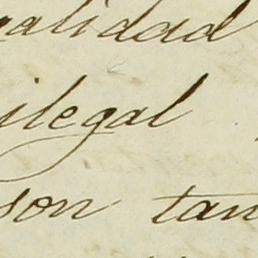 alidad
ilegal
son tan